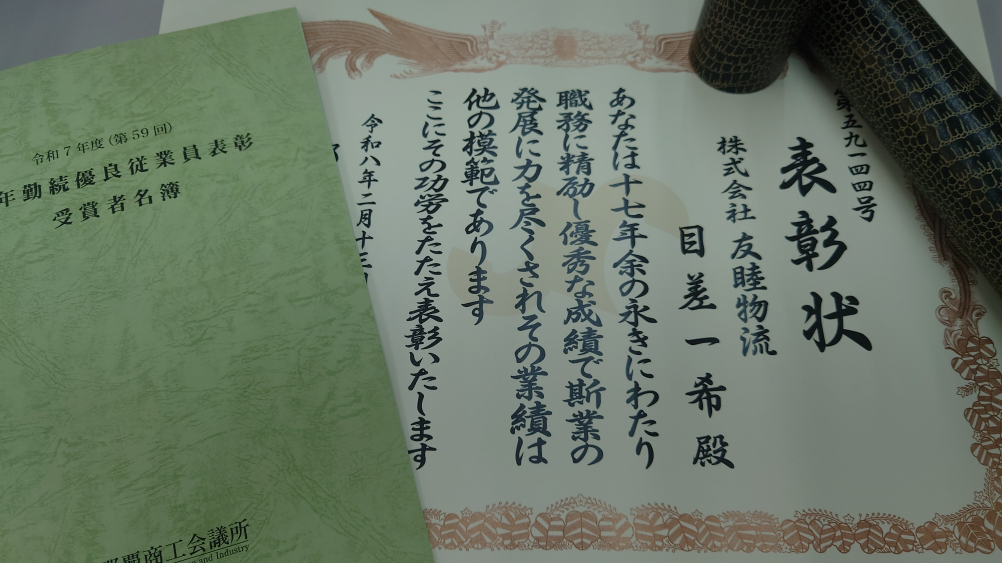 令和7年度(第59回)
年勤続優良従業員表彰
受賞者名簿
商工会議所
and Industry
第五九一四四号
表彰状
株式会社 友睦物流
目差一希殿
あなたは十七年余の永きにわたり
職務に精励し優秀な成績で斯業の
発展に力を尽くされその業績は
他の模範であります
ここにその功労をたたえ表彰いたします
令和八年二月十三